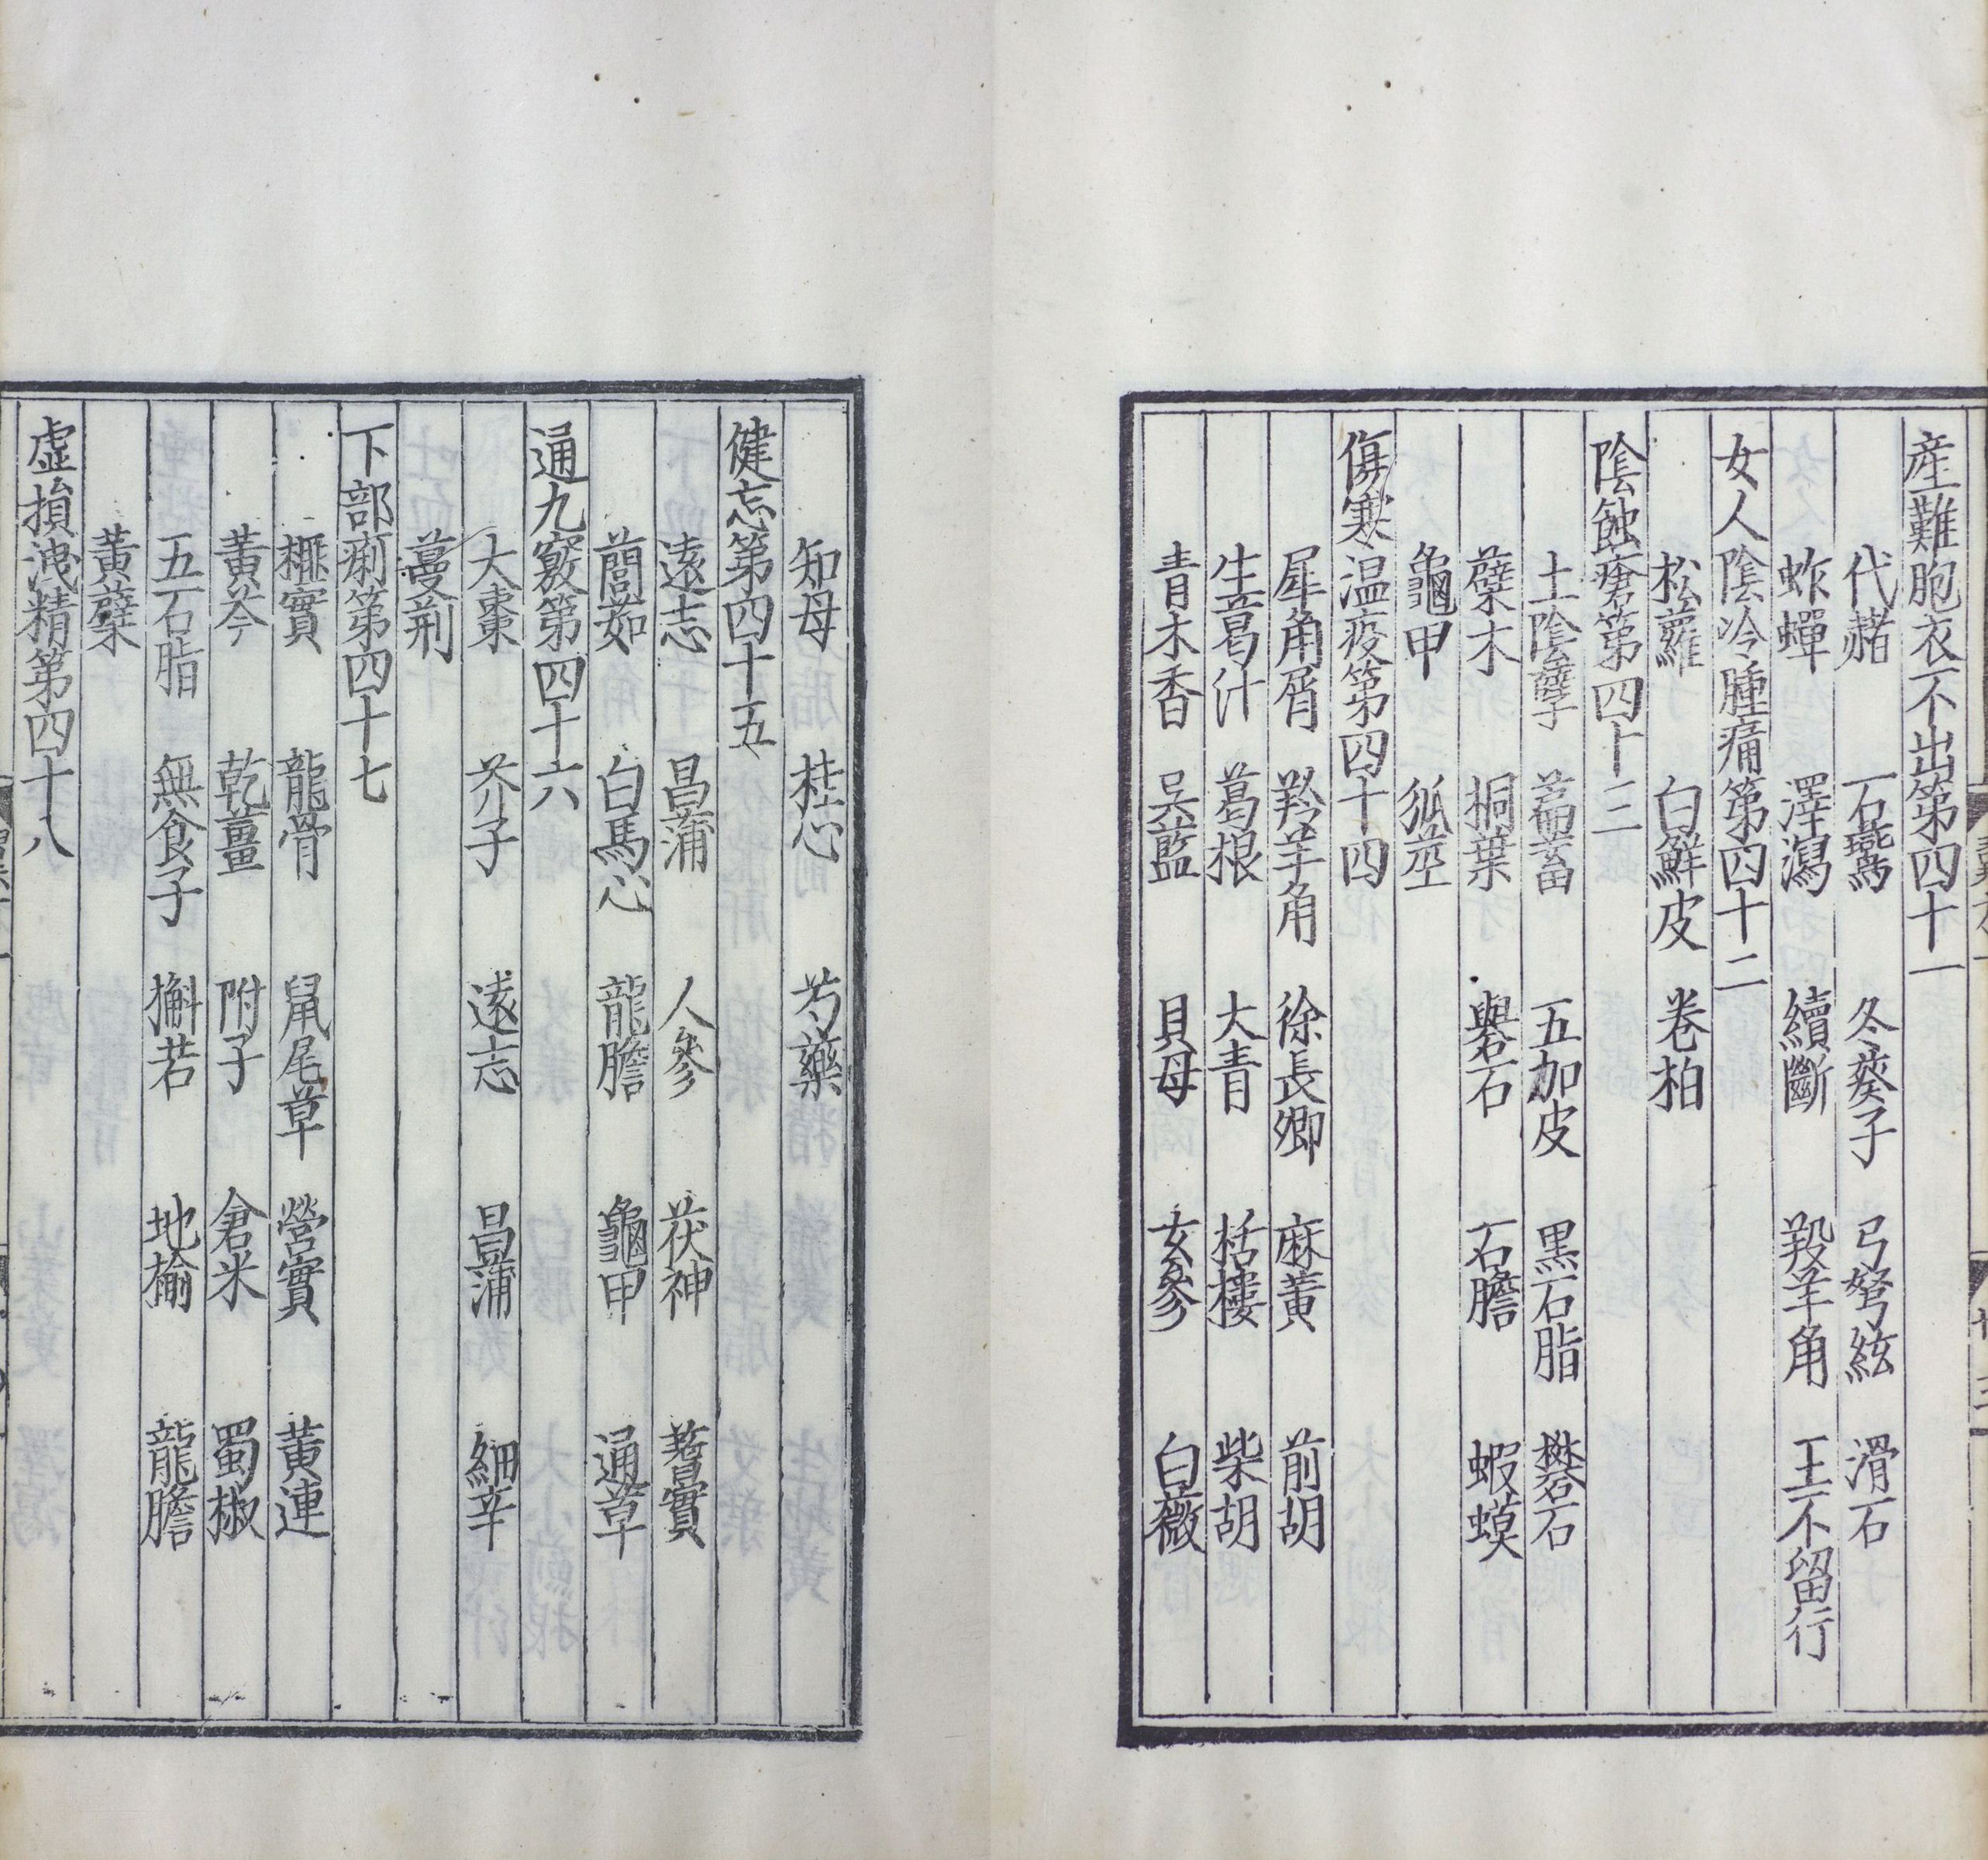 産難胞衣不出第四十一
代赭　石鷰　冬葵子　弓弩絃　滑石
蚱蟬　澤瀉　續斷　羖羊角　王不留行
女人陰冷腫痛第四十二
松蘿　白鮮皮　卷柏
陰蝕瘡第四十三
土陰孽　萹蓄　五加皮　黒石脂　礬石
蘗木　桐葉　礜石　石膽　蝦蟆
龜甲　狐莖
傷寒温疫第四十四
犀角屑　羚羊角　徐長卿　麻黄　前胡
生葛汁　葛根　大青　栝樓　柴胡
青木香　吳藍　貝母　玄參　白薇
知母　桂心　芍藥
健忘第四十五
遠志　昌蒲　人參　茯神　蓍實
䕡茹　白馬心　龍膽　龜甲　通草
通九竅第四十六
大棗　芥子　遠志　昌蒲　細辛
蔓荆
下部痢第四十七
榧實　龍骨　鼠尾草　營實　黄連
黄芩　乾薑　附子　倉米　蜀椒
五石脂　無食子　槲若　地榆　龍膽
黄蘗
虚損洩精第四十八